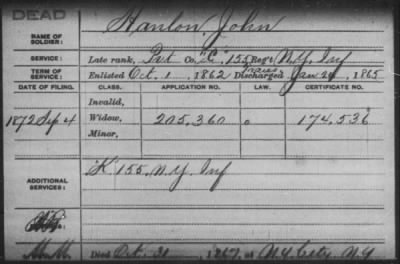 DEAD
NAME OF SOLDIER: Hanlon, John
SERVICE: Late rank, Pvt Co. "C", 155 Reg't N.Y. Inf
TERM OF SERVICE: Enlisted Oct. 1, 1862 Discharged Jan 1865
DATE OF FILING. CLASS. APPLICATION NO. LAW. CERTIFICATE NO.
Invalid,
1872 Sep 4 Widow, 205,360 o 174,536
Minor,
ADDITIONAL SERVICES: "K" 155, N.Y. Inf
Died Oct. 31, 1867, at N.Y. City, N.Y.